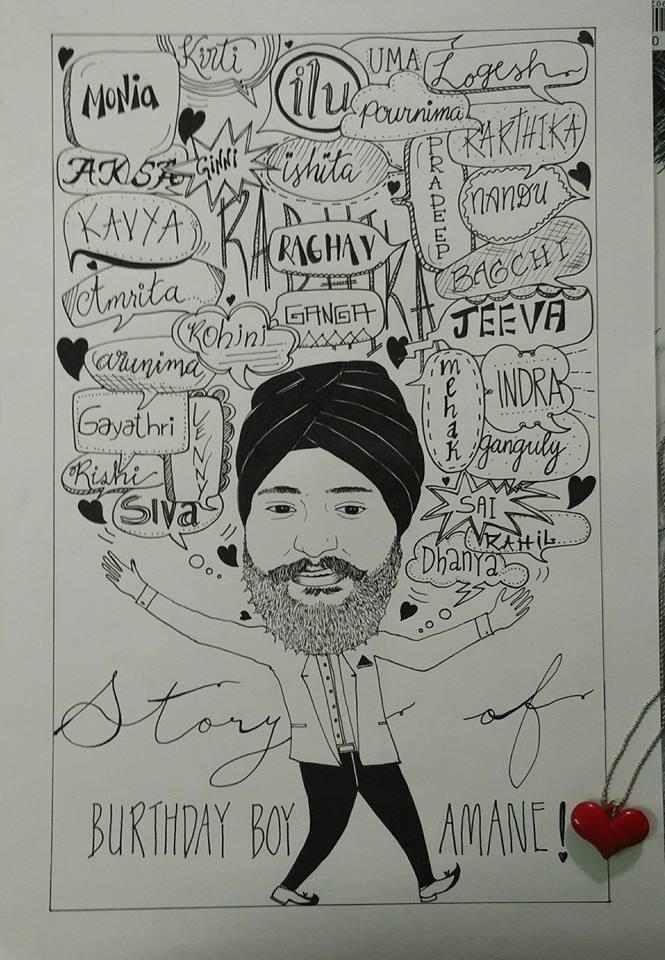 Kirti
UMA
Logesh
MONIA
ilu
Pournima
KARTHIKA
AKSA
GiNNi
ishita
PRADEEP
NANDU
KAVYA
RADHIKA
RAGHAV
BAGCHI
Amrita
GANGA
JEEVA
Rohini
arunima
mehaK
INDRA
Gayathri
VENN
ganguly
Rishi
Siva
SAI
RAHIL
Dhanya
Story of
BURTHDAY BOY AMANE!